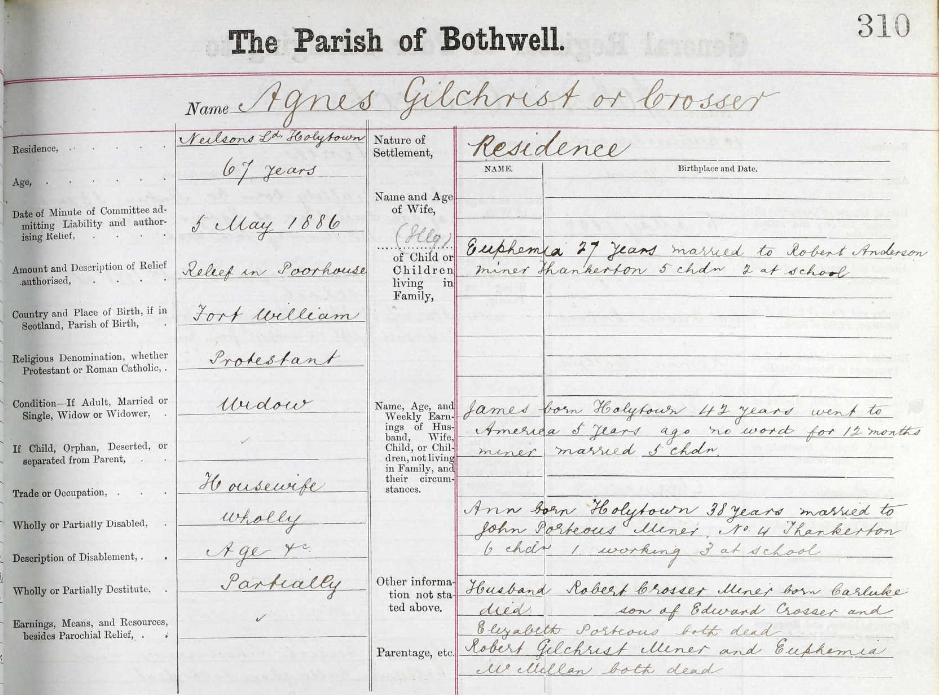 310
The Parish of Bothwell.
Name Agnes Gilchrist or Crosser
Residence, Neilsons Ld Holytown
Age, 67 years
Date of Minute of Committee ad-
mitting Liability and author-
ising Relief, 5 May 1886
Amount and Description of Relief
authorised, Relief in Poorhouse
Country and Place of Birth, if in
Scotland, Parish of Birth, Fort William
Religious Denomination, whether
Protestant or Roman Catholic, Protestant
Condition—If Adult, Married or
Single, Widow or Widower, Widow
If Child, Orphan, Deserted, or
separated from Parent, ✓
Trade or Occupation, Housewife
Wholly or Partially Disabled, Wholly
Description of Disablement, Age &c.
Wholly or Partially Destitute, Partially
Earnings, Means, and Resources,
besides Parochial Relief, ✓
Nature of
Settlement, Residence
NAME. Birthplace and Date.
Name and Age
of Wife,
of Child or
Children
living in
Family,
Euphemia 27 years married to Robert Anderson
miner Thankerton 5 chdn 2 at school
Name, Age, and
Weekly Earn-
ings of Hus-
band, Wife,
Child, or Chil-
dren, not living
in Family, and
their circum-
stances.
James born Holytown 42 years went to
America 5 years ago no word for 12 months
miner married 5 chdn
Ann born Holytown 38 years married to
John Porteous Miner. No 4 Thankerton
6 chdn 1 working 3 at school
Other informa-
tion not sta-
ted above.
Husband Robert Crosser Miner born Carluke
died son of Edward Crosser and
Elizabeth Porteous both dead
Parentage, etc.
Robert Gilchrist Miner and Euphemia
Mc Millan both dead